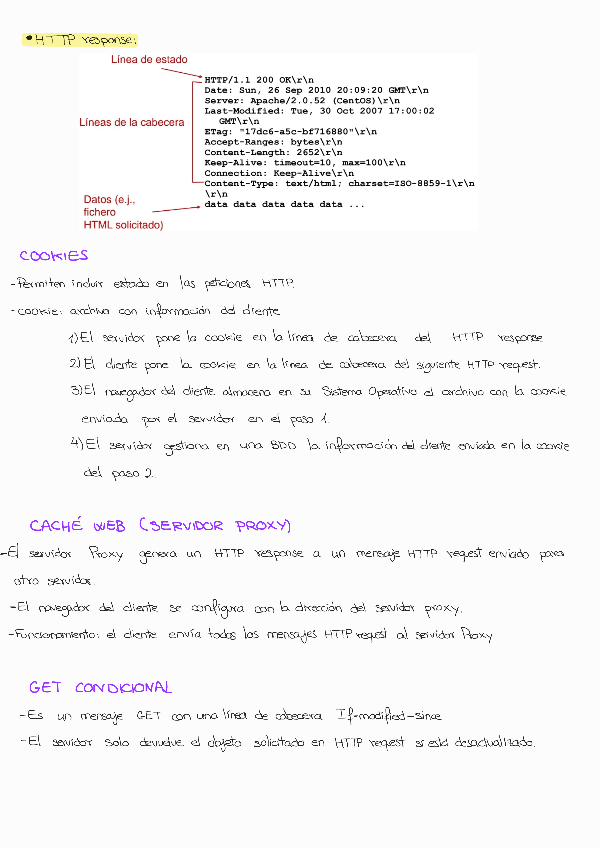 • HTTP response:
Línea de estado
HTTP/1.1 200 OK\r\n
Date: Sun, 26 Sep 2010 20:09:20 GMT\r\n
Server: Apache/2.0.52 (CentOS)\r\n
Last-Modified: Tue, 30 Oct 2007 17:00:02
GMT\r\n
Líneas de la cabecera
ETag: "17dc6-a5c-bf716880"\r\n
Accept-Ranges: bytes\r\n
Content-Length: 2652\r\n
Keep-Alive: timeout=10, max=100\r\n
Connection: Keep-Alive\r\n
Content-Type: text/html; charset=ISO-8859-1\r\n
\r\n
data data data data data ...
Datos (e.j.,
fichero
HTML solicitado)
COOKIES
-Permiten incluir estado en las peticiones HTTP.
-cookie: archivo con información del cliente
1)El servidor pone la cookie en la línea de cabecera del HTTP response
2)El cliente pone la cookie en la línea de cabecera del siguiente HTTP request.
3)El navegador del cliente almacena en su Sistema Operativo el archivo con la cookie
enviada por el servidor en el paso 1.
4)El servidor gestiona en una BDD la información del cliente enviada en la cookie
del paso 2.
CACHÉ WEB (SERVIDOR PROXY)
-El servidor Proxy genera un HTTP response a un mensaje HTTP request enviado para
otro servidor.
-El navegador del cliente se configura con la dirección del servidor proxy.
-Funcionamiento: el cliente envía todos los mensajes HTTP request al servidor Proxy
GET CONDICIONAL
-Es un mensaje GET con una línea de cabecera If-modified-since
-El servidor solo devuelve el objeto solicitado en HTTP request si está desactualizado.